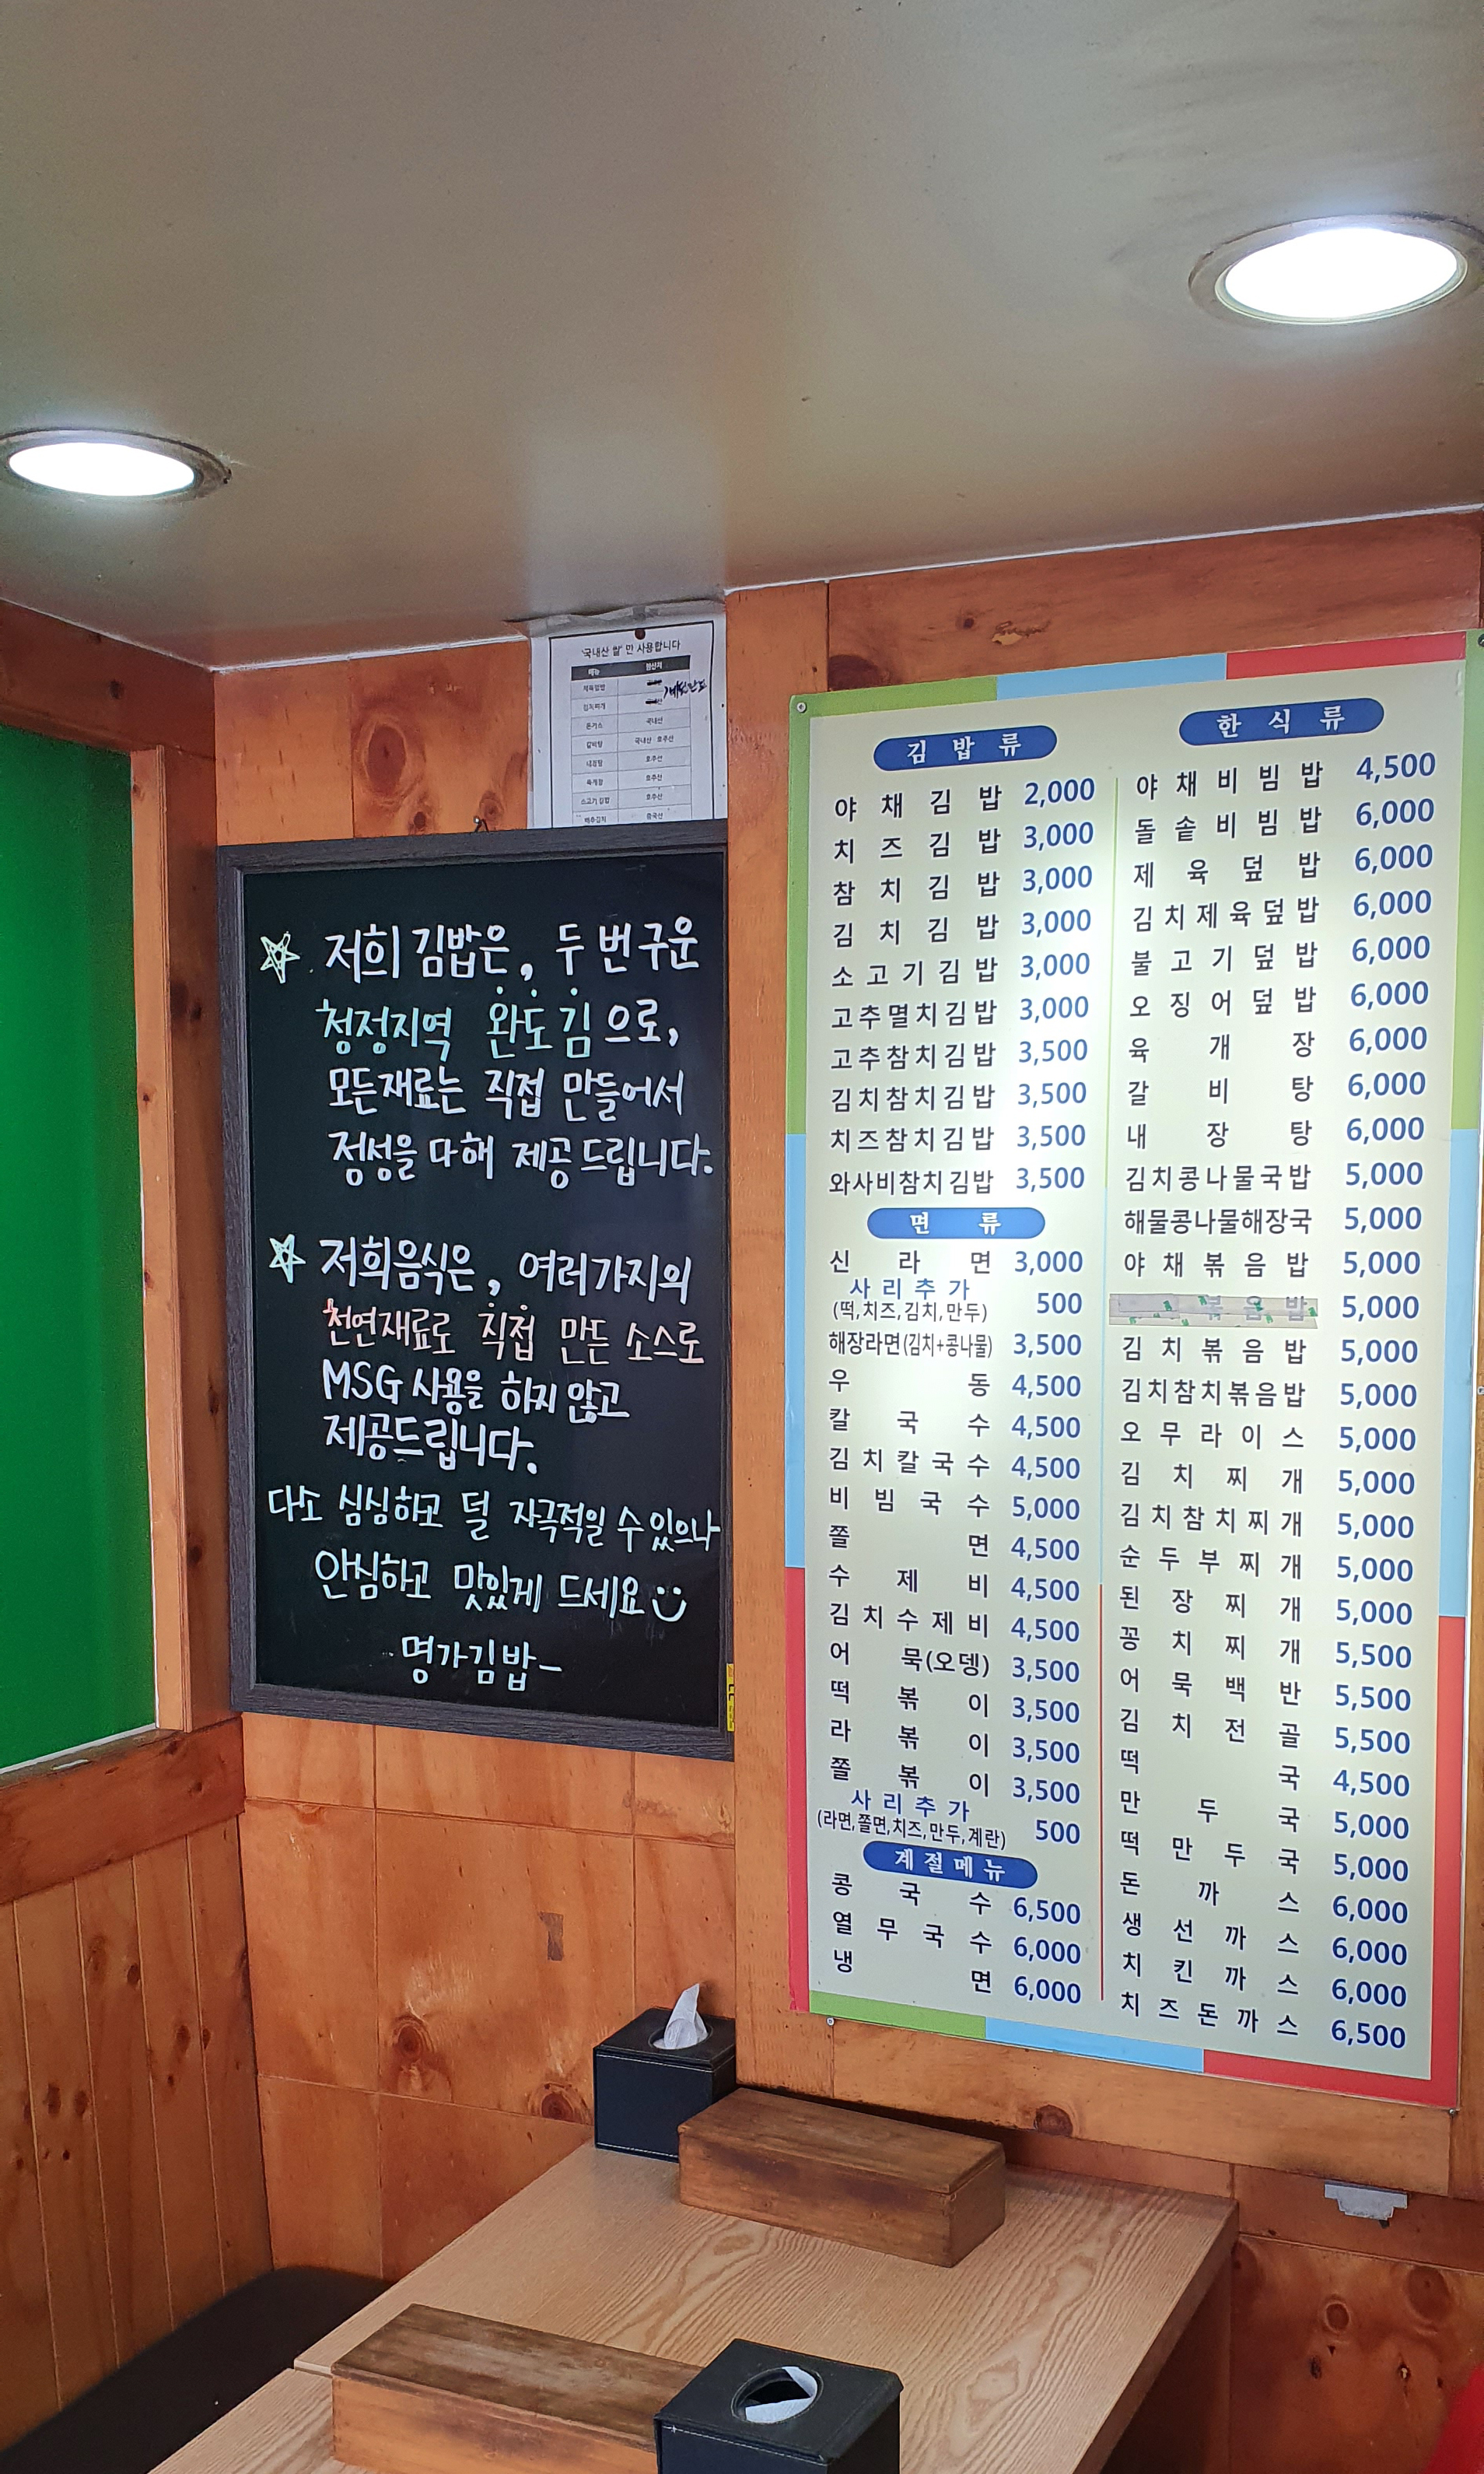 '국내산 쌀' 만 사용합니다
메뉴 원산지
제육덮밥
김치찌개
돈가스 국내산
갈비탕 국내산 호주산
내장탕 호주산
육개장 호주산
소고기 김밥 호주산
배추김치 중국산
저희 김밥은, 두 번 구운
청정지역 완도김으로,
모든재료는 직접 만들어서
정성을 다해 제공드립니다.
저희음식은, 여러가지의
천연재료로 직접 만든 소스로
MSG 사용을 하지 않고
제공드립니다.
다소 심심하고 덜 자극적일 수 있으나
안심하고 맛있게 드세요
명가김밥-
김밥류
야채김밥 2,000
치즈김밥 3,000
참치김밥 3,000
김치김밥 3,000
소고기김밥 3,000
고추멸치김밥 3,000
고추참치김밥 3,500
김치참치김밥 3,500
치즈참치김밥 3,500
와사비참치김밥 3,500
면류
신라면 3,000
사리추가
(떡,치즈,김치,만두) 500
해장라면(김치+콩나물) 3,500
우동 4,500
칼국수 4,500
김치칼국수 4,500
비빔국수 5,000
쫄면 4,500
수제비 4,500
김치수제비 4,500
어묵(오뎅) 3,500
떡볶이 3,500
라볶이 3,500
쫄볶이 3,500
사리추가
(라면,쫄면,치즈,만두,계란) 500
계절메뉴
콩국수 6,500
열무국수 6,000
냉면 6,000
한식류
야채비빔밥 4,500
돌솥비빔밥 6,000
제육덮밥 6,000
김치제육덮밥 6,000
불고기덮밥 6,000
오징어덮밥 6,000
육개장 6,000
갈비탕 6,000
내장탕 6,000
김치콩나물국밥 5,000
해물콩나물해장국 5,000
야채볶음밥 5,000
볶음밥 5,000
김치볶음밥 5,000
김치참치볶음밥 5,000
오무라이스 5,000
김치찌개 5,000
김치참치찌개 5,000
순두부찌개 5,000
된장찌개 5,000
꽁치찌개 5,500
어묵백반 5,500
김치전골 5,500
떡국 4,500
만두국 5,000
떡만두국 5,000
돈까스 6,000
생선까스 6,000
치킨까스 6,000
치즈돈까스 6,500